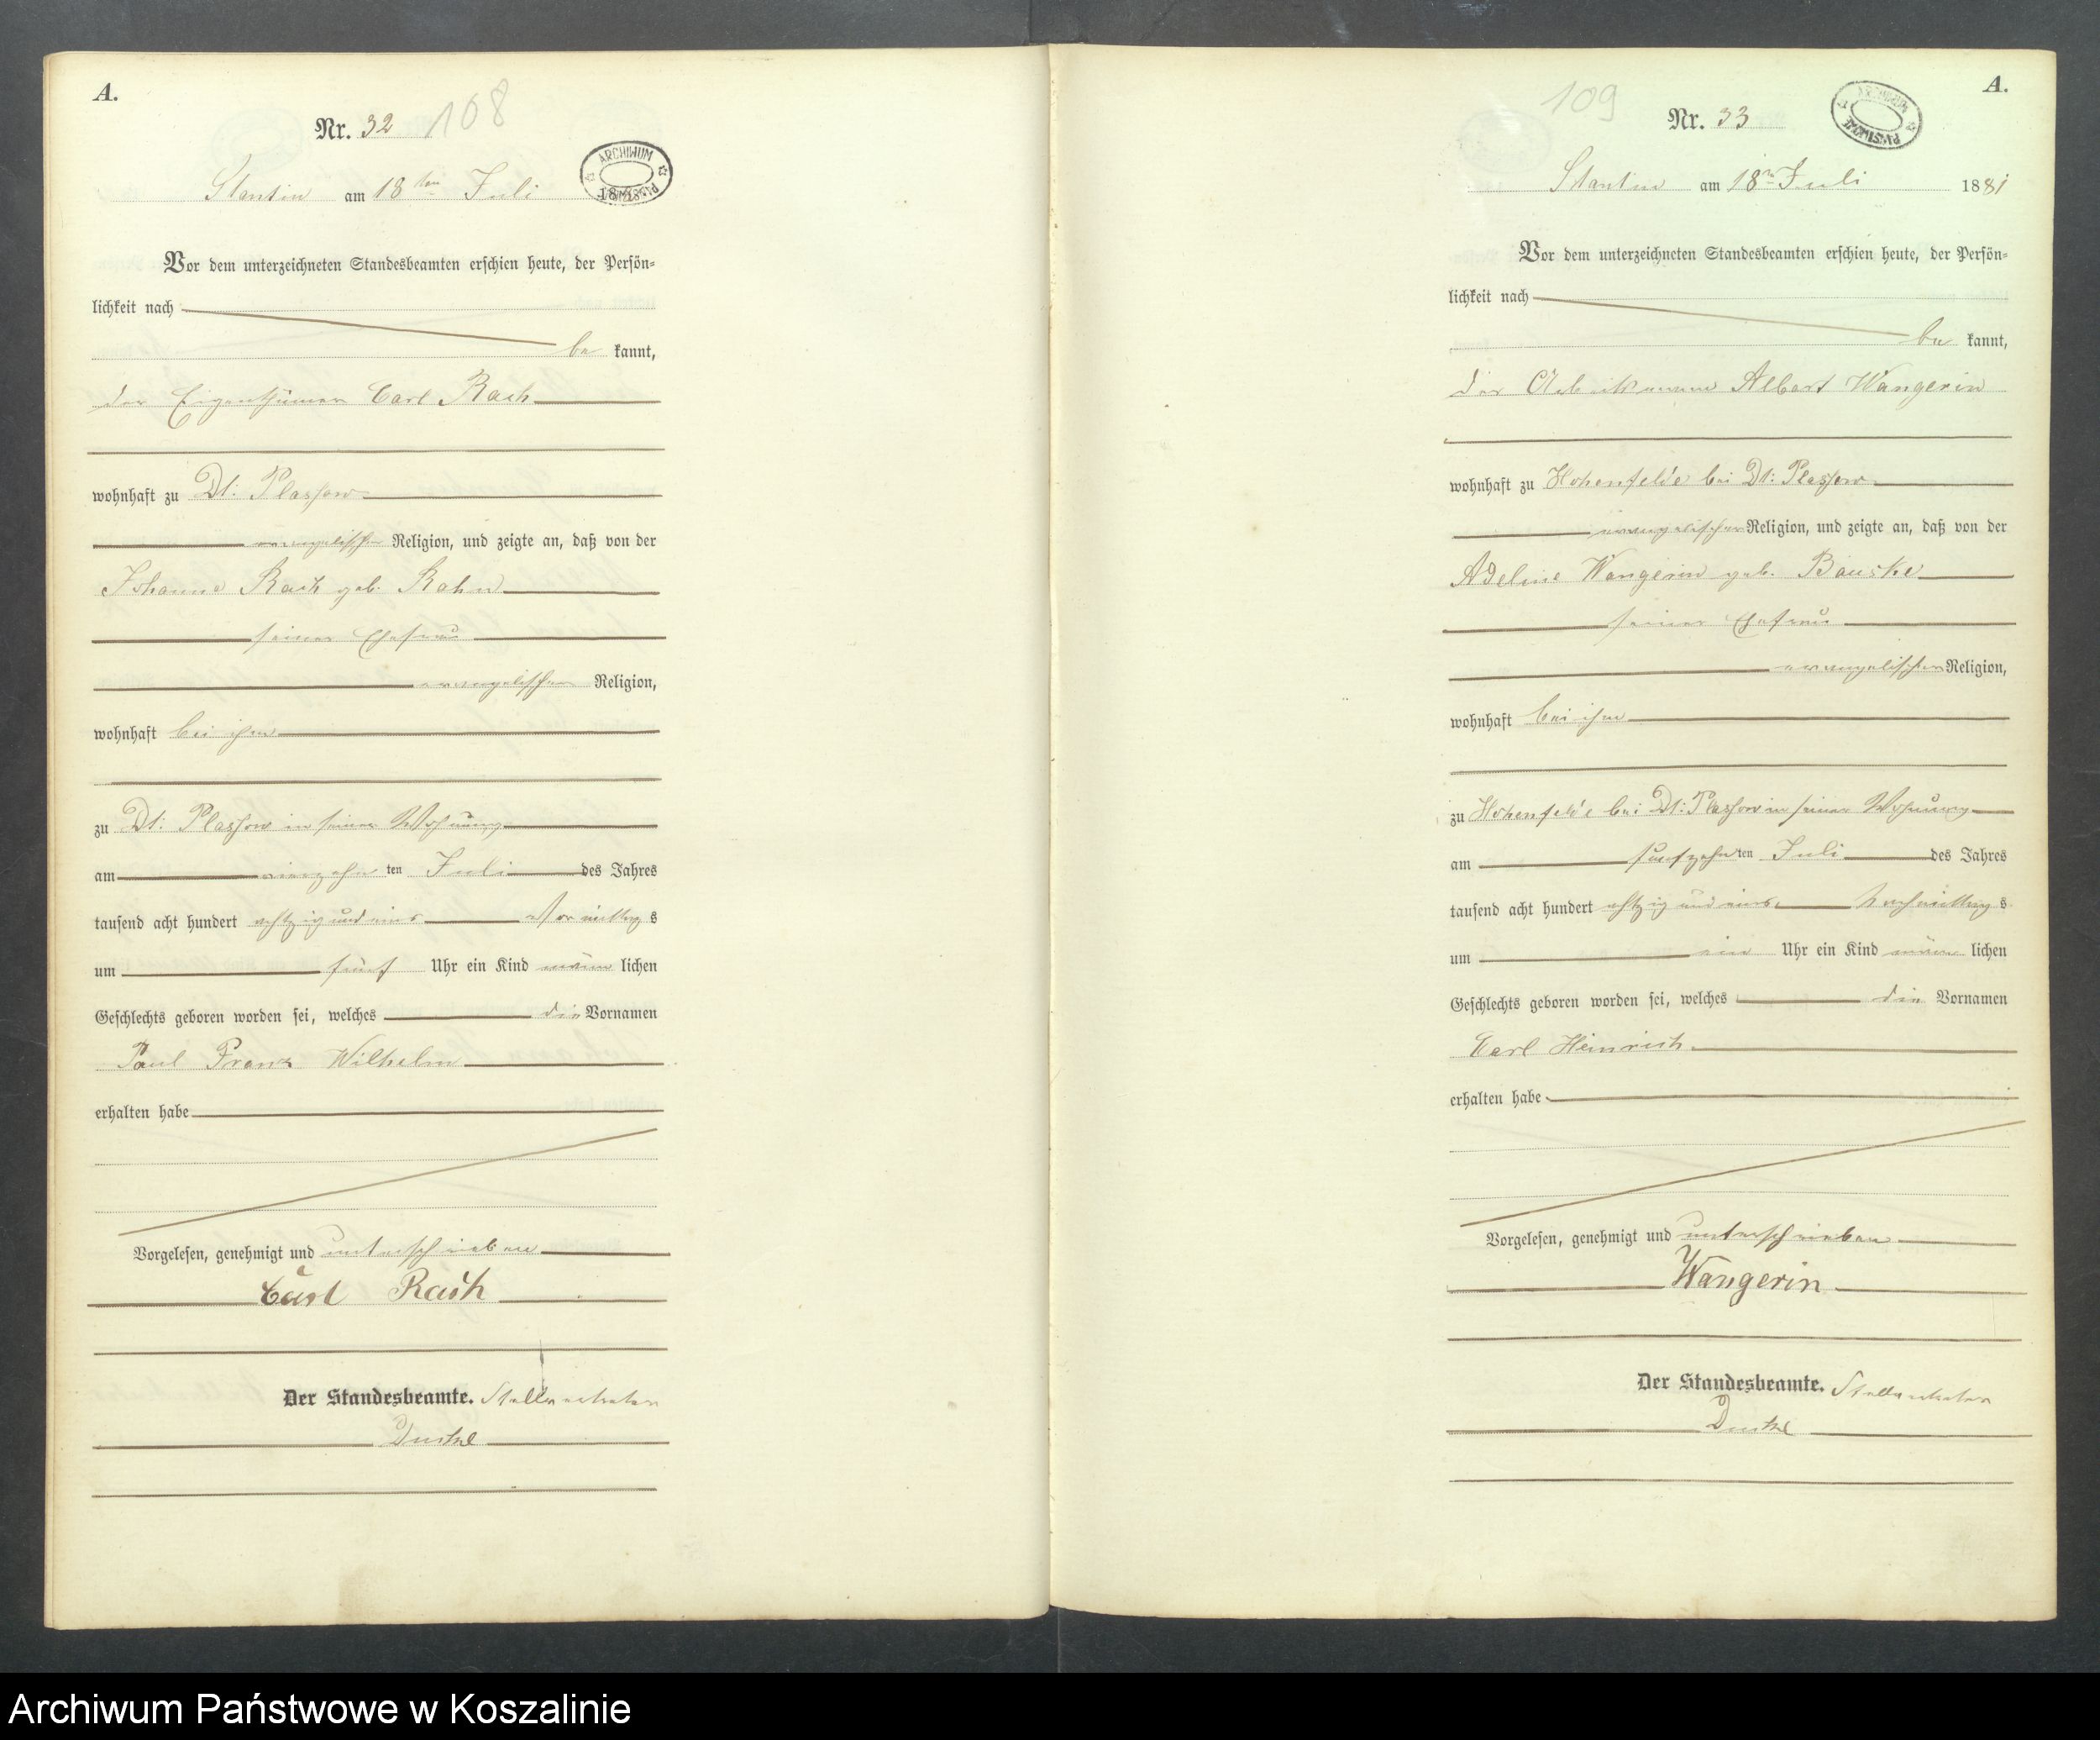 A.
Nr. 32 108
Stantin am 18ten Juli 18
ARCHIWUM PAŃSTWOWE
Vor dem unterzeichneten Standesbeamten erschien heute, der Persön-
lichkeit nach
be kannt,
der Eigenthümer Carl Rach
wohnhaft zu Dt: Plassow
evangelischer Religion, und zeigte an, daß von der
Johanne Rach geb. Rahn
seiner Ehefrau
evangelischer Religion,
wohnhaft bei ihm
zu Dt: Plassow in seiner Wohnung
am vierzehn ten Juli des Jahres
tausend acht hundert achtzig und eins Vormittag s
um fünf Uhr ein Kind männ lichen
Geschlechts geboren worden sei, welches die Vornamen
Paul Franz Wilhelm
erhalten habe
Vorgelesen, genehmigt und unterschrieben
Carl Rach
Der Standesbeamte. Stellvertreter
A.
109
Nr. 33
ARCHIWUM PAŃSTWOWE
Stantin am 18n Juli 1881
Vor dem unterzeichneten Standesbeamten erschien heute, der Persön-
lichkeit nach
be kannt,
der Arbeitsmann Albert Wangerin
wohnhaft zu Hohenfelde bei Dt: Plassow
evangelischer Religion, und zeigte an, daß von der
Adeline Wangerin geb. Bauske
seiner Ehefrau
evangelischer Religion,
wohnhaft bei ihm
zu Hohenfelde bei Dt: Plassow in seiner Wohnung
am fünfzehn ten Juli des Jahres
tausend acht hundert achtzig und eins Nachmittag s
um ein Uhr ein Kind männ lichen
Geschlechts geboren worden sei, welches die Vornamen
Carl Heinrich
erhalten habe
Vorgelesen, genehmigt und unterschrieben
Wangerin
Der Standesbeamte. Stellvertreter
Archiwum Państwowe w Koszalinie